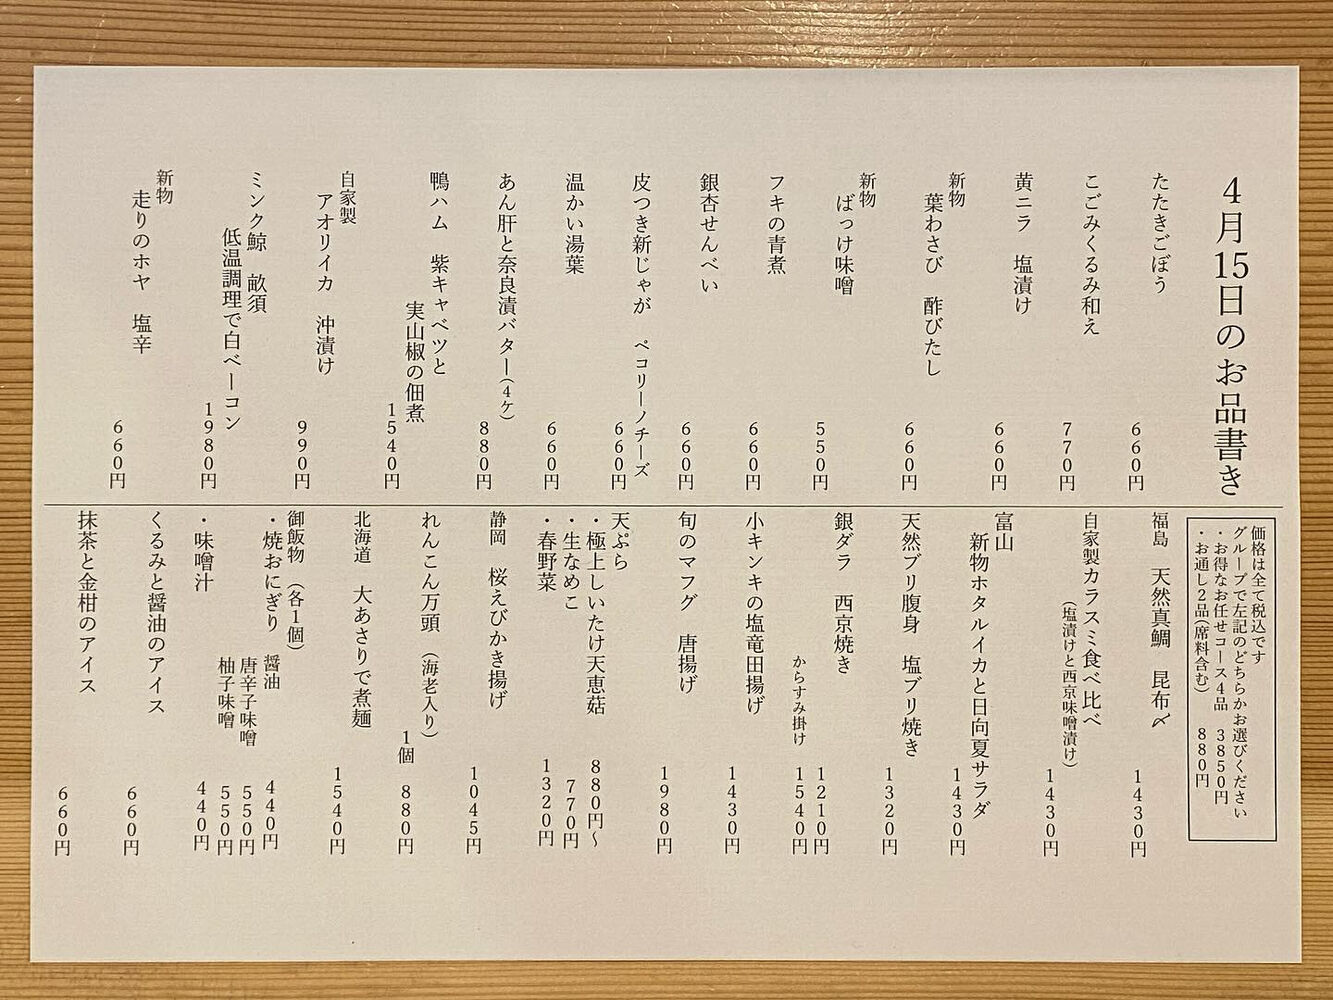 4月15日のお品書き
たたきごぼう 660円
こごみくるみ和え 770円
黄ニラ 塩漬け 660円
新物
葉わさび 酢びたし 660円
新物
ばっけ味噌 550円
フキの青煮 660円
銀杏せんべい 660円
皮つき新じゃが ペコリーノチーズ 660円
温かい湯葉 660円
あん肝と奈良漬バター(4ケ) 880円
鴨ハム 紫キャベツと
実山椒の佃煮 1540円
自家製
アオリイカ 沖漬け 990円
ミンク鯨 畝須
低温調理で白ベーコン 1980円
新物
走りのホヤ 塩辛 660円
価格は全て税込です
グループで左記のどちらかお選びください
・お得なお任せコース4品 3850円
・お通し2品(席料含む) 880円
福島 天然真鯛 昆布〆 1430円
自家製カラスミ食べ比べ
(塩漬けと西京味噌漬け) 1430円
富山
新物ホタルイカと日向夏サラダ 1430円
天然ブリ腹身 塩ブリ焼き 1320円
銀ダラ 西京焼き 1210円
からすみ掛け 1540円
小キンキの塩竜田揚げ 1430円
旬のマフグ 唐揚げ 1980円
天ぷら
・極上しいたけ天恵菇 880円〜
・生なめこ 770円
・春野菜 1320円
静岡 桜えびかき揚げ 1045円
れんこん万頭 (海老入り)
1個 880円
北海道 大あさりで煮麺 1540円
御飯物 (各1個)
・焼おにぎり 醤油 440円
唐辛子味噌 550円
柚子味噌 550円
・味噌汁 440円
くるみと醤油のアイス 660円
抹茶と金柑のアイス 660円